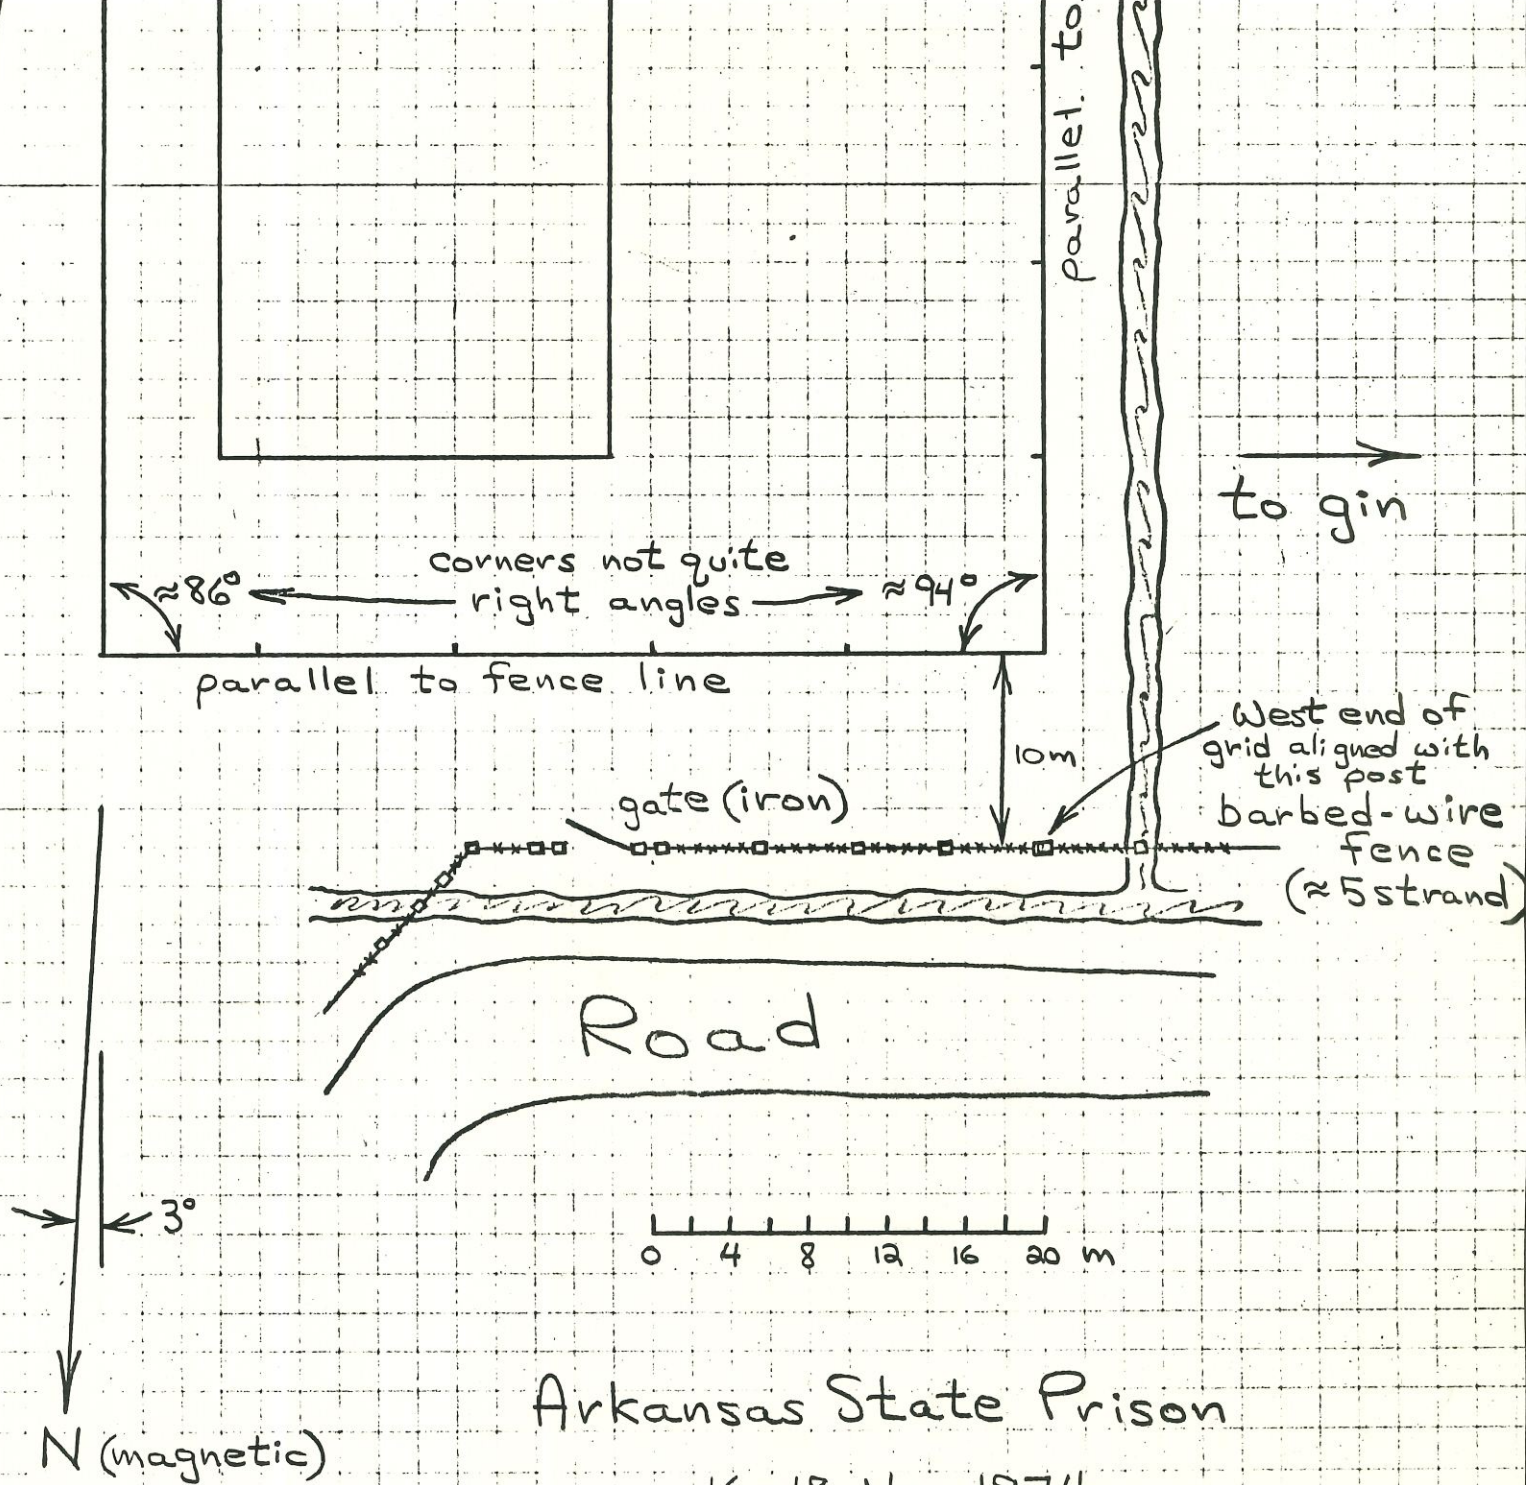 parallel to
to gin
corners not quite
right angles
≈86°
≈94°
parallel to fence line
10m
West end of
grid aligned with
this post
gate (iron)
barbed-wire
fence
(≈5 strand)
Road
3°
0 4 8 12 16 20 m
Arkansas State Prison
N (magnetic)